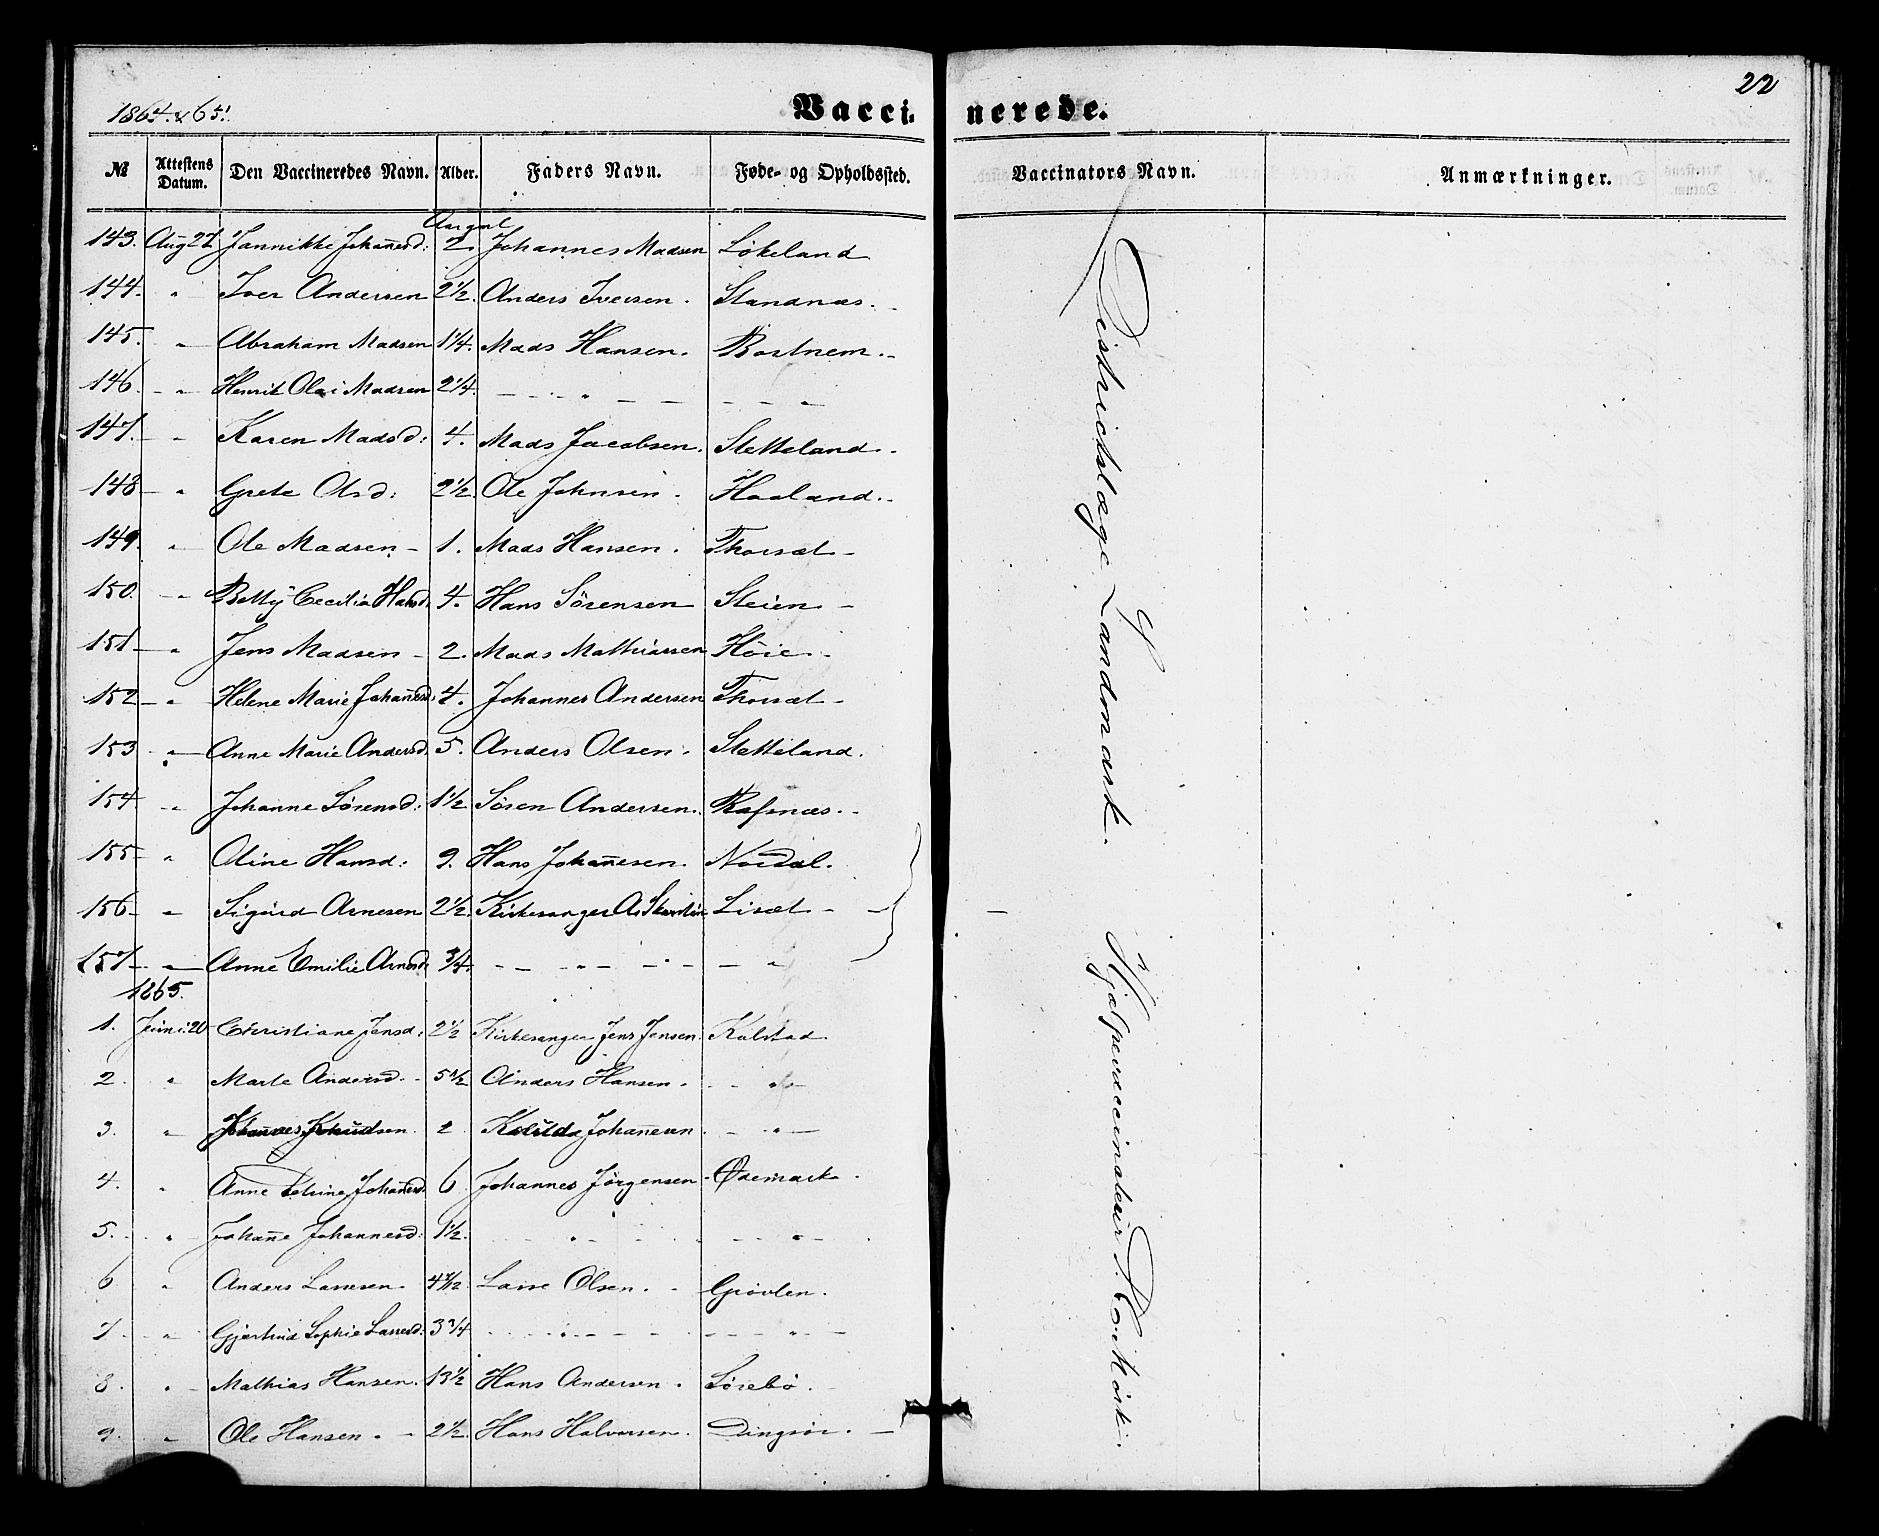 1864 & 65.
Vaccinerede.
22
№ Attestens Datum. Den Vaccineredes Navn. Alder. Faders Navn. Føde- og Opholdssted. Vaccinators Navn. Anmærkninger.
143. Aug 27 Jannikke Johannesd: Aar gml 2. Johannes Madsen Løkeland
144. " Iver Andersen 2 1/2. Anders Iversen. Standnæs.
145. " Abraham Madsen 1 1/4. Mads Hansen. Rostnem.
146. " Henrik Olai Madsen 2 1/4. — " — — — —
147. " Karen Madsd: 4. Mads Jacobsen. Stetteland.
148 " Grete Olsd: 2 1/2. Ole Johnsen. Haaland.
149. " Ole Madsen 1. Mads Hansen. Thorsæt
150. " Betty Cecilia Hansd. 4. Hans Sørensen Steien
151 " Jens Madsen 2. Mads Mathiassen Høie
152 " Helene Marie Johannesd: 4. Johannes Andersen Thorsæt
153 " Anne Marie Andersd. 5. Anders Olsen. Stetteland.
154 " Johanne Sørensd: 1 1/2 Søren Andersen. Rafsnæs.
155 " Oline Hansd: 9. Hans Johannesen. Nordal.
156 " Sigurd Arnesen 2 1/2. Kirkesanger A. Lisæt
157 " Anne Emilie Arnesd. 3/4. — " — — "
1865.
1. Juni 20 Christiane Jensd: 2 1/2 Kirkesanger Jens Jensen. Kalstad
2. " Marte Andersd. 5 1/2 Anders Hansen. "
3. " Johannes Knudsen. 2 Johannesen "
4. " Anne Petrine Johannesd. 6 Johannes Jørgensen Ødemark.
5. " Johanne Johannesd: 1 1/2. " "
6 " Anders Larsen 4 1/2. Lasse Olsen. Grøvlen.
7. " Gjertrud Sophie Lassesd: 3 3/4 " "
8. " Mathias Hansen. 13 1/2 Hans Andersen. Sørebø.
9. " Ole Hansen. 2 1/2. Hans Halvorsen. Dingsør.
Districtslæge Landmark. Hjælpevaccinateur